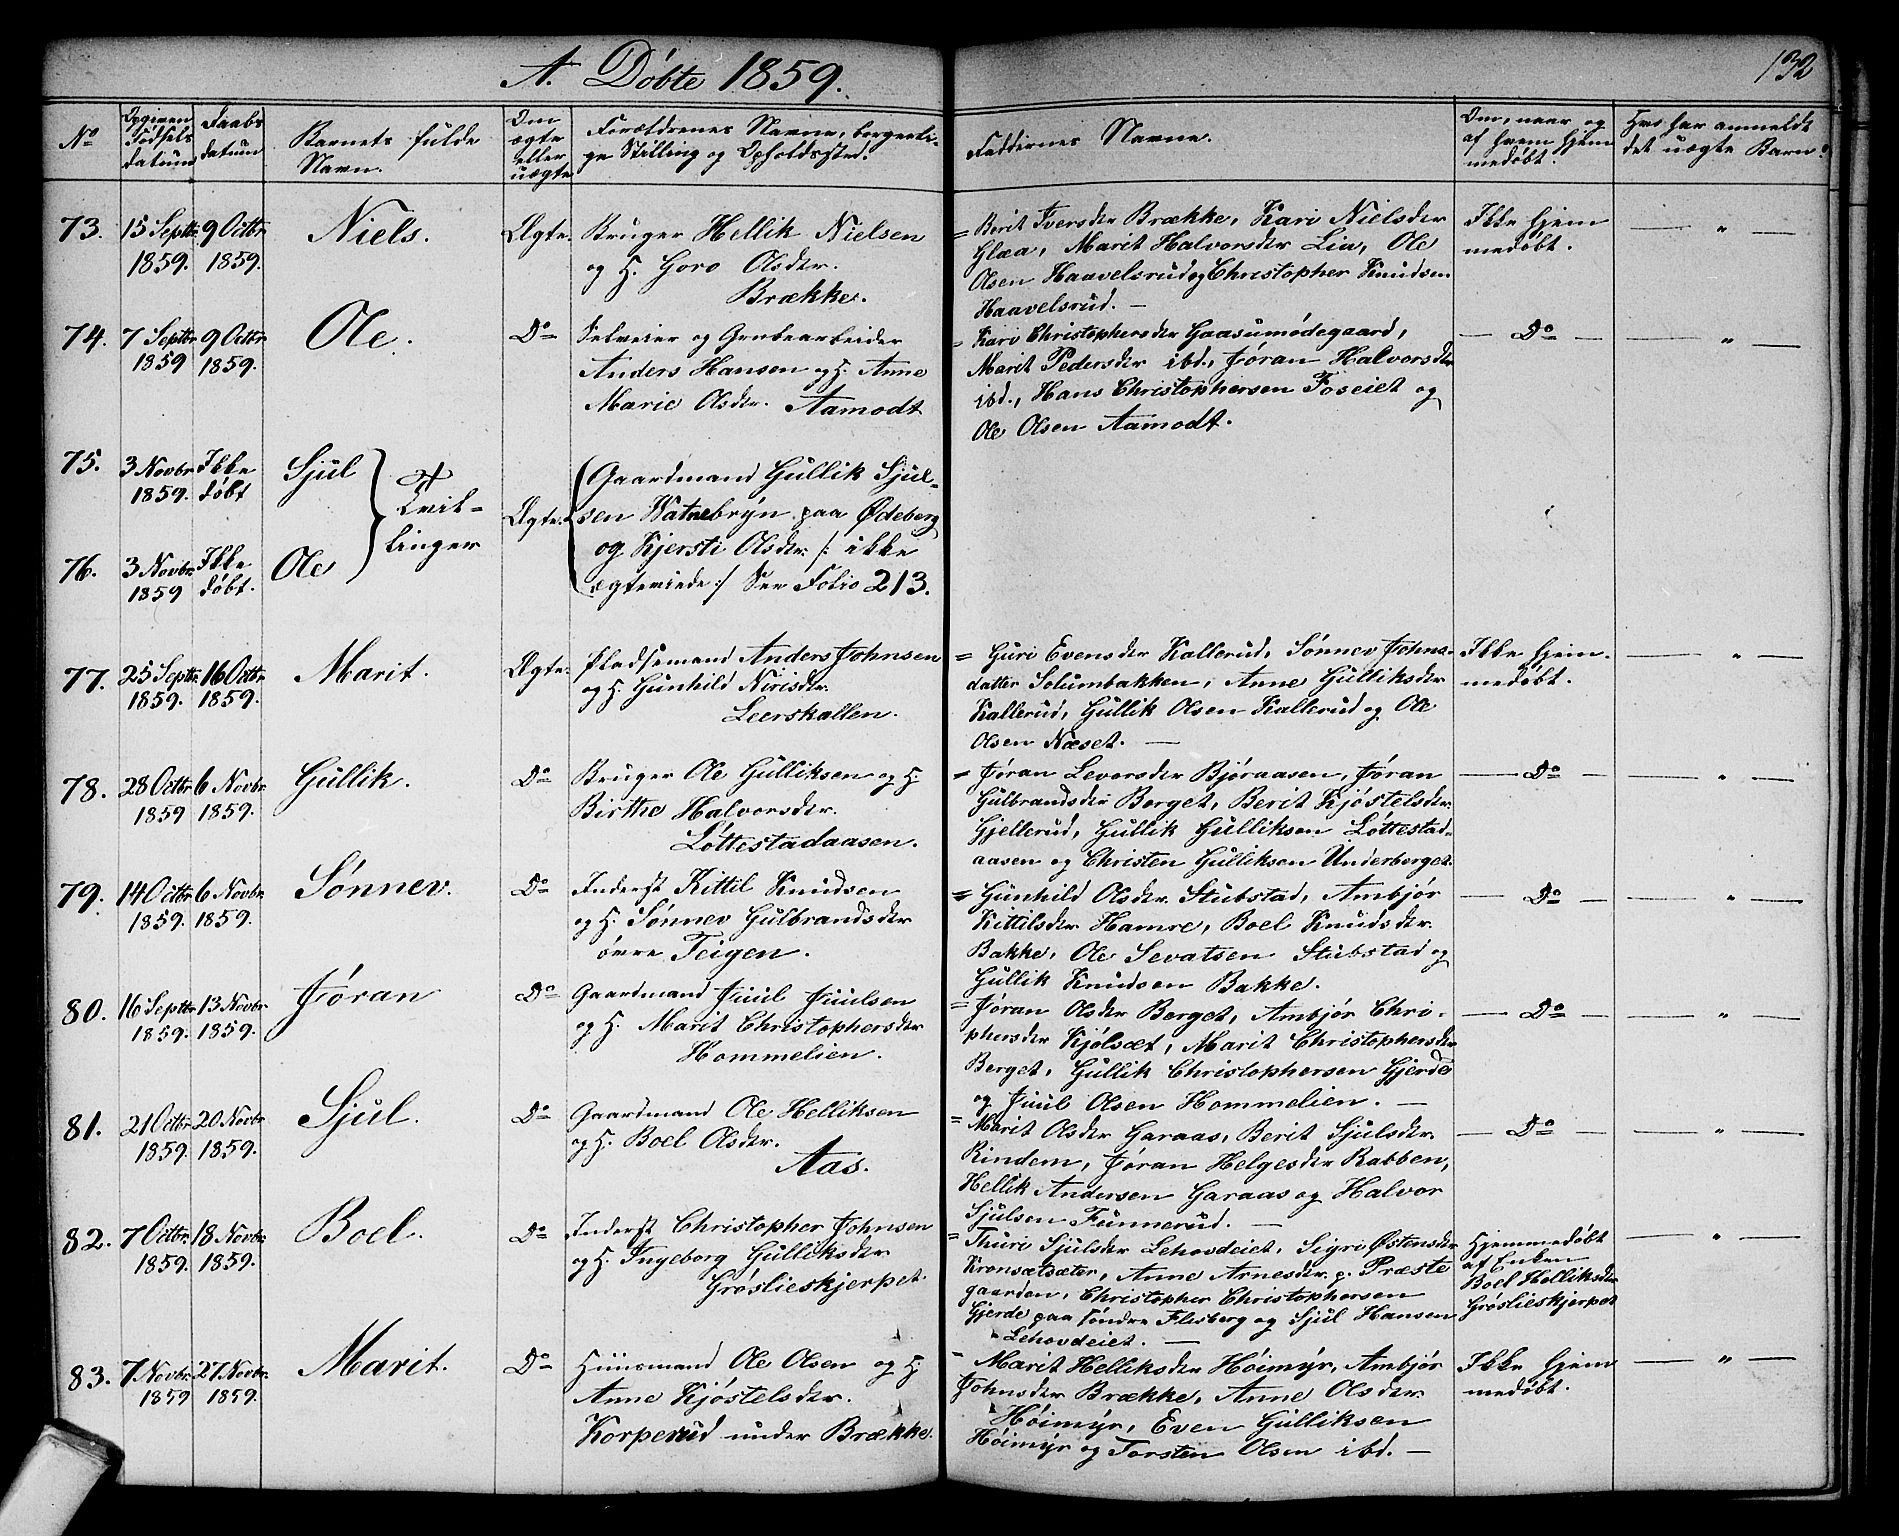 A. Døbte 1859.
132
No
Opgiven Fødsels datum
Daabs datum
Barnets fulde Navn.
Om ægte eller uægte
Forældrenes Navne, borgerlige Stilling og Opholdssted.
Faddernes Navne.
Om, naar og af hvem hjemmedøbt.
Hvo har anmeldt det uægte Barn?
73.
15 Septbr 1859.
9 Octbr 1859.
Niels.
Ægte.
Bruger Hellik Nielsen
og H. Goro Olsdtr.
Brække.
= Berit Iversdtr Brække, Kari Nielsdtr
Glæa, Marit Halvorsdtr Lia, Ole
Olsen Haavelsrud og Christopher Knudsen
Haavelsrud. —
Ikke hjem
medøbt.
— " —
74.
7 Septbr 1859
9 Octbr 1859.
Ole.
Do
Selveier og Grubearbeider
Anders Hansen og H. Anne
Marie Olsdtr. Aamodt
= Kari Christophersdtr Gaasumødegaard,
Marit Pedersdtr ibd., Jøran Halvorsdtr
ibd., Hans Christophersen Foseiet og
Ole Olsen Aamodt.
— Do —
— " —
75.
3 Novbr 1859.
Ikke døbt
Sjul
76.
3 Novbr. 1859
Ikke døbt.
Ole
Tvil=
linger
Ægte.
Gaardmand Gullik Sjul=
sen Watnebryn paa Ødeberg
og Kjersti Olsdtr. /: ikke
ægteviede :/ See Folio 213.
77.
25 Septbr. 1859.
16 Octbr 1859.
Marit.
Ægte.
Pladsemand Anders Johnsen
og H. Gunhild Nirisdtr.
Leerskallen.
= Guri Evensdtr Kallerud, Sønnev Johns-
datter Solumbakken, Anne Gulliksdtr
Kallerud, Gullik Olsen Kallerud og Ole
Olsen Næset. —
Ikke hjem-
medøbt.
— " —
78.
28 Octbr 1859
6 Novbr. 1859.
Gullik.
Do
Bruger Ole Gulliksen og H.
Birthe Halvorsdtr.
Løttestadaasen.
= Jøran Levorsdtr Bjøraasen, Jøran
Gulbrandsdtr Berget, Berit Kjøstelsdtr.
Gjellerud, Gullik Gulliksen Løttestad-
aasen og Christen Gulliksen Underberget.
— Do
— " —
79.
14 Octbr 1859.
6 Novbr. 1859.
Sønnev.
Do
Inderst Kittil Knudsen
og H. Sønnev Gulbrandsdtr
øvre Teigen.
= Gunhild Olsdtr. Stubstad, Ambjør
Kittilsdtr Hamre, Boel Knudsdtr.
Bakke, Ole Sevatsen Stubstad og
Gullik Knudsen Bakke.
— Do —
— " —
80.
16 Septbr 1859.
13 Novbr 1859.
Jøran
Do
Gaardmand Juul Juulsen
og H. Marit Christophersdtr
Hommelien.
= Jøran Olsdtr Berget, Ambjør Chri-
phersdtr Kjølsæt, Marit Christophersdtr
Berget, Gullik Christophersen Gjerde
og Juul Olsen Hommelien. —
— Do —
— " —
81.
21 Octbr 1859.
20 Novbr 1859.
Sjul.
Do
Gaardmand Ole Helliksen
og H. Boel Olsdtr.
Aas.
= Marit Olsdtr Garaas, Berit Sjulsdtr.
Rindem, Jøran Helgesdtr Rabben,
Hellik Andersen Garaas og Halvor
Sjulsen Funnerud. —
— Do —
— " —
82.
7 Octbr. 1859.
18 Novbr. 1859.
Boel.
Do
Inderst Christopher Johnsen
og H. Ingeborg Gulliksdtr.
Grøslieskjerpet.
= Thuri Sjulsdtr Lehovdeiet, Sigri Østensdtr
Kronsætsæter, Anne Arnesdtr. p. Præste
gaarden, Christopher Christophersen
Gjerde paa søndre Flesberg og Sjul Hansen
Lehovdeiet. —
Hjemmedøbt
af Enken
Boel Helliksdtr
Grøslieskjerpet
— " —
83.
7 Novbr. 1859
27 Novbr. 1859.
Marit.
Do
Huusmand Ole Olsen og H.
Anne Kjøstelsdtr.
Korperud under Brække.
= Marit Helliksdtr Høimyr, Ambjør
Johnsdtr Brække, Anne Olsdtr
Høimyr, Even Gulliksen
Høimyr og Torsten Olsen ibd. —
Ikke hjem
medøbt.
— " —